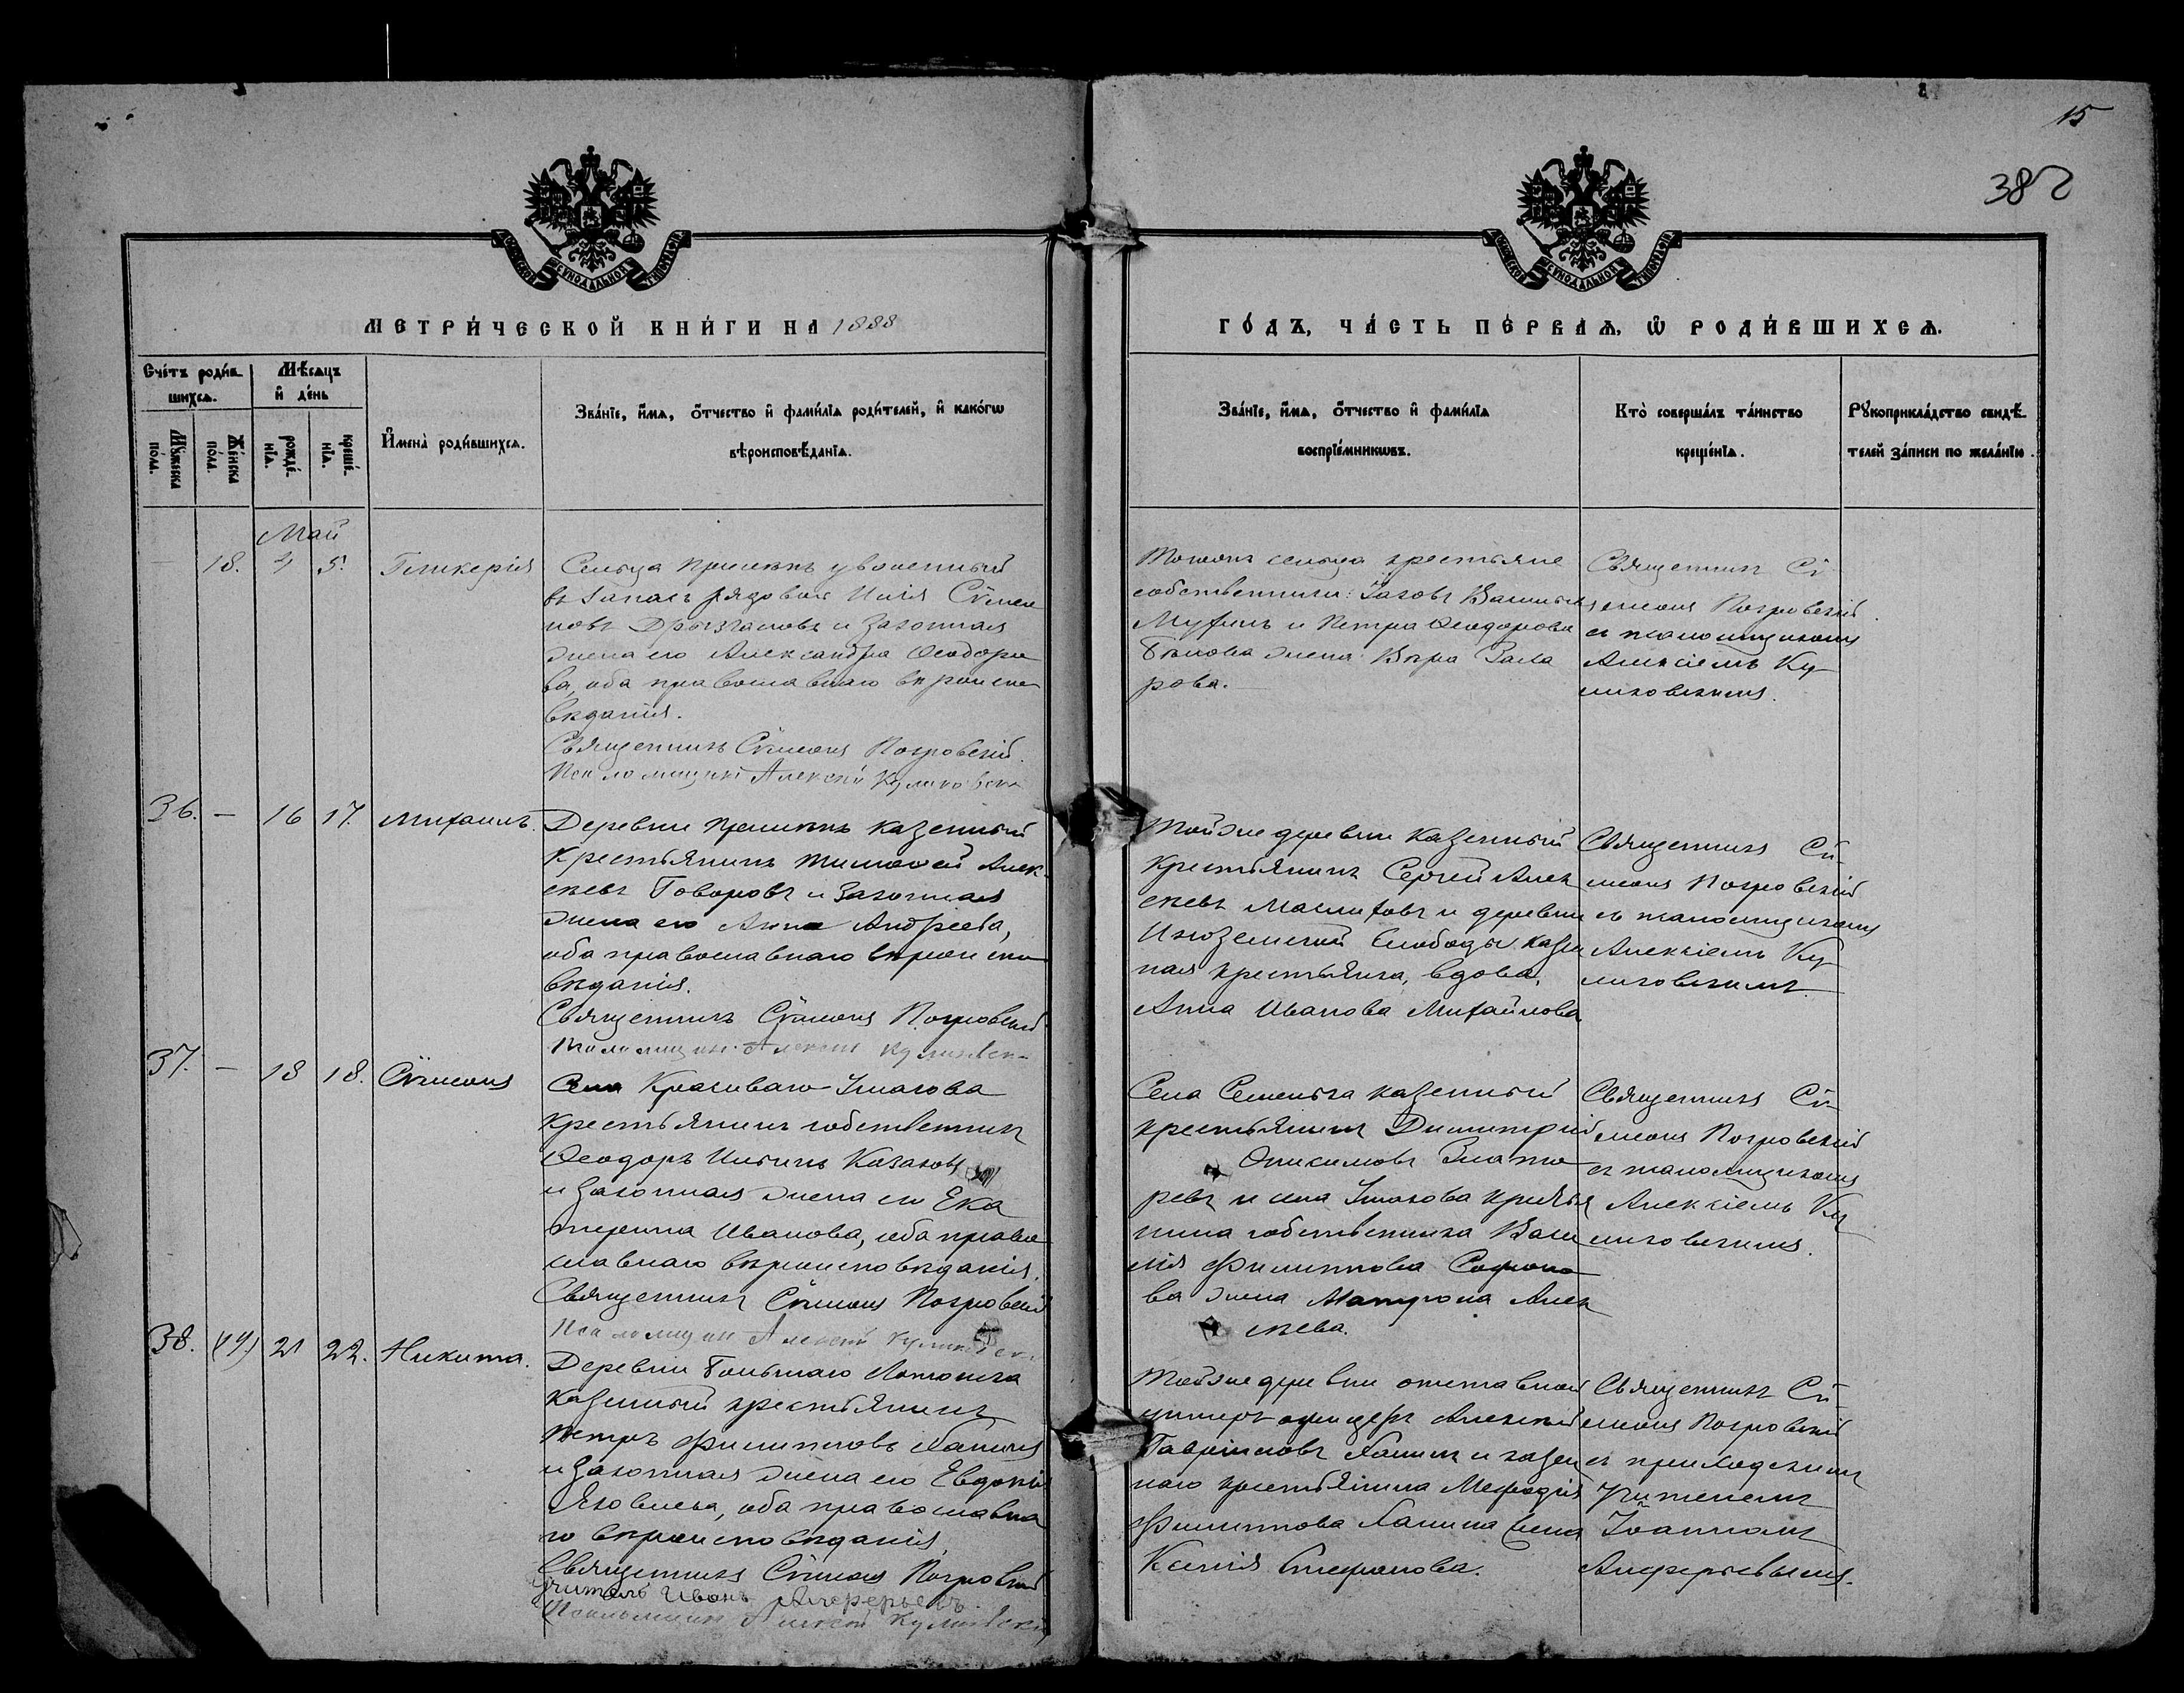 15
382
МЕТРИ́ЧЕСКОЙ КНИ́ГИ НА 1888
ГО́ДЪ, ЧА́СТЬ ПЕ́РВАѦ, Ѡ҆ РОДИ́ВШИХСѦ.
Сче́тъ роди́вшихсѧ.
Мѣ́сѧцъ и҆ де́нь
Мꙋ́жеска по́ла.
Же́нска по́ла.
рожде́нїѧ.
креще́нїѧ.
И҆мена̀ роди́вшихсѧ.
Зва́нїе, и҆́мѧ, ѻ҆́тчество и҆ фами́лїѧ роди́телей, и҆ како́гѡ
вѣроисповѣ́данїѧ.
Зва́нїе, и҆́мѧ, ѻ҆́тчество и҆ фами́лїѧ
воспрїе́мникѡвъ.
Кто̀ соверша́лъ та́инство
креще́нїѧ.
Рꙋкоприкла́дство свидѣ́-
телей за́писи по жела́нїю.
Май
18. 4 5. Гликерія
Сельца уволенный
въ запасъ рядовой Илія Сѵмео
новъ и законная
жена его Александра Ѳеодоро
ва, оба православнаго вѣроиспо
вѣданія.
Священникъ Сѵмеонъ Покровскій.
Псаломщикъ Алексѣй Куликовскій
Тогожъ сельца крестьяне
собственники: Іаковъ Васильевъ
и Петра Ѳеодорова
Бѣлова жена Вѣра Заха
рова.
Священникъ Сѵ-
меонъ Покровскій
съ псаломщикомъ
Алексіемъ Ку-
ликовскимъ.
36. — 16 17. Михаилъ.
Деревни казенный
крестьянинъ Тимоѳей Алек-
сѣевъ Говоровъ и законная
жена его Анна Андреева,
оба православнаго вѣроиспо
вѣданія.
Священникъ Сѵмеонъ Покровскій.
Псаломщикъ Алексѣй Куликовск-
Тойже деревни казенный
крестьянинъ Сергей Алек
сѣевъ и деревни
Иноземской Слободы казен
ная крестьянка, вдова,
Анна Иванова Михайлова
Священникъ Сѵ-
меонъ Покровскій
съ псаломщикомъ
Алексіемъ Ку-
ликовскимъ.
37. — 18 18. Сѵмеонъ
Села Красиваго-Ушакова
крестьянинъ собственникъ
Ѳеодоръ Ильинъ Казаковъ
и законная жена его Ека
терина Иванова, оба право
славнаго вѣроисповѣданія.
Священникъ Сѵмеонъ Покровскій
Псаломщикъ Алексѣй Куликовск
Села казенный
крестьянинъ Димитрій
Злато
ревъ и села Ушакова крестья
нина собственника Васи
лія Филиппова Софроно
ва жена Матрона Алек
сѣева.
Священникъ Сѵ-
меонъ Покровскій
съ псаломщикомъ
Алексіемъ Ку
ликовскимъ.
38. (14) 21 22. Никита.
Деревни Большаго
казенный крестьянинъ
Петръ Филипповъ Ханинъ
и законная жена его Евдокія
Яковлева, оба православна
го вѣроисповѣданія.
Священникъ Сѵмеонъ Покровскій
Учитель Иванъ Алферьевъ.
Псаломщикъ Алексѣй Куликовскій
Тойже деревни отставной
унтеръ офицеръ Алексѣй
Гавріиловъ Ханинъ и казен
наго крестьянина Меѳодія
Филиппова Ханина жена
Ксенія Стефанова.
Священникъ Сѵ-
меонъ Покровскій
съ приходскимъ
Учителемъ
Іоанномъ
Алферьевымъ.